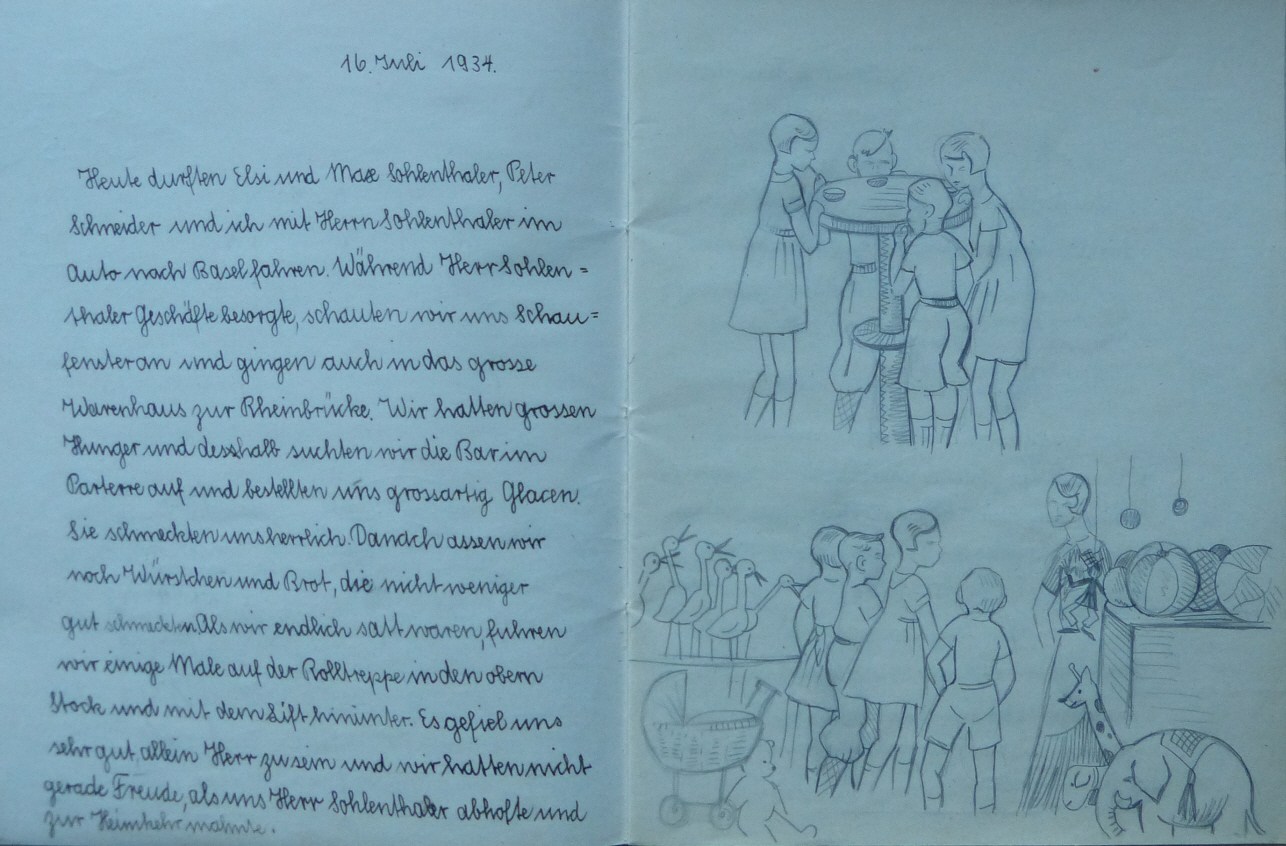 16. Juli 1934.
Heute durften Elsi und Max Sohlenthaler, Peter
Schneider und ich mit Herrn Sohlenthaler im
Auto nach Basel fahren. Während Herr Sohlen=
thaler Geschäfte besorgte, schauten wir uns Schau=
fenster an und gingen auch in das grosse
Warenhaus zur Rheinbrücke. Wir hatten grossen
Hunger und desshalb suchten wir die Bar im
Parterre auf und bestellten uns grossartig Glacen.
Sie schmeckten uns herrlich. Danach assen wir
noch Würstchen und Brot, die nicht weniger
gut schmeckten. Als wir endlich satt waren, fuhren
wir einige Male auf der Rolltreppe in den obern
Stock und mit dem Lift hinunter. Es gefiel uns
sehr gut, allein Herr zu sein und wir hatten nicht
gerade Freude, als uns Herr Sohlenthaler abholte und
zur Heimkehr mahnte.